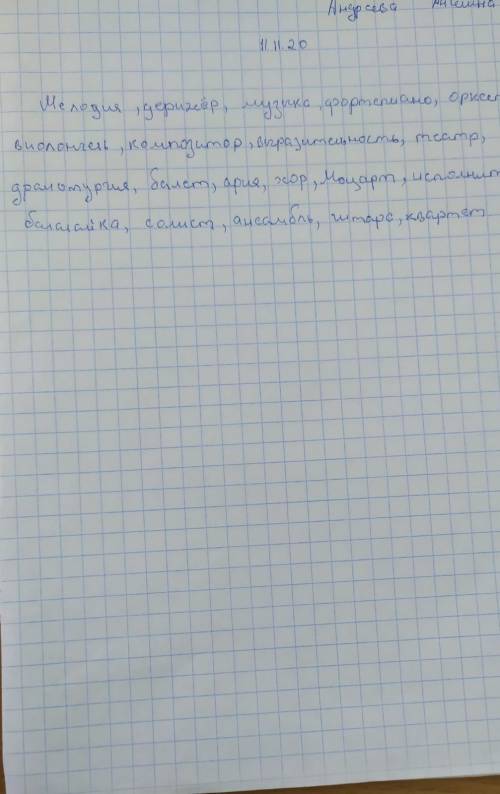 Андреева
11.11.20
Мелодия, дерижёр, музыка, фортепиано, оркест
виолончель, композитор, выразительность, театр,
драмотургия, балет, ария, хор, Моцарт, исполнит
балалайка, солист, ансамбль, квартет